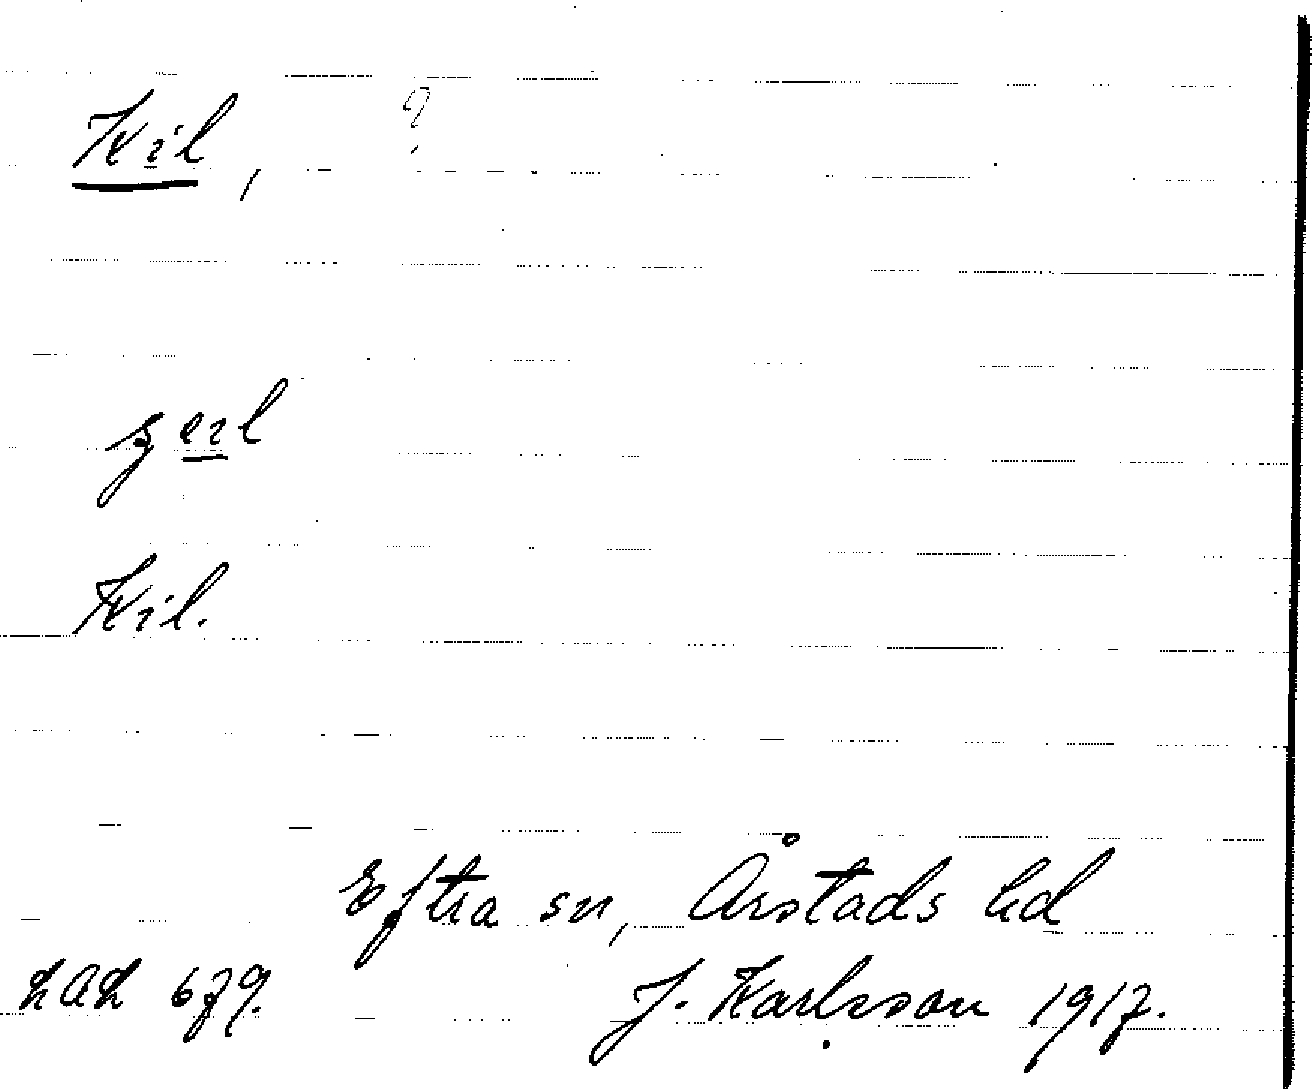 Kil, ?
Kil.
Eftra sn, Årstads hd
LAL 679.
J. Karlsson 1917.